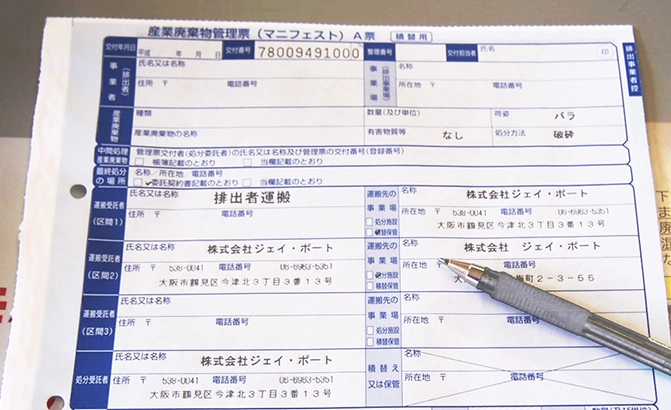 産業廃棄物管理票（マニフェスト）Ａ票 積替用
交付年月日 平成 年 月 日 交付番号 78009491000 整理番号 交付担当者 氏名 印
排出事業者控
事業者（排出者） 氏名又は名称
住所 〒 電話番号
事業場（排出事業場） 名称
所在地 〒 電話番号
産業廃棄物 種類 数量(及び単位) 荷姿 バラ
産業廃棄物の名称 有害物質等 なし 処分方法 破砕
中間処理産業廃棄物 管理票交付者(処分委託者)の氏名又は名称及び管理票の交付番号(登録番号)
帳簿記載のとおり 当欄記載のとおり
最終処分の場所 名称／所在地／電話番号
委託契約書記載のとおり 当欄記載のとおり
運搬受託者(区間1) 氏名又は名称 排出者運搬
住所 〒 電話番号
運搬先の事業場 名称 株式会社ジェイ・ポート
処分施設 積替保管
所在地 〒 538-0041 電話番号 06-6963-5351
大阪市鶴見区今津北３丁目３番１３号
運搬受託者(区間2) 氏名又は名称 株式会社ジェイ・ポート
住所 〒 538-0041 電話番号 06-6963-5351
大阪市鶴見区今津北３丁目３番１３号
運搬先の事業場 名称 株式会社ジェイ・ポート
処分施設 積替保管
所在地 〒
町２－３－５５
運搬受託者(区間3) 氏名又は名称
住所 〒 電話番号
運搬先の事業場 名称
処分施設 積替保管
所在地 〒 電話番号
処分受託者 氏名又は名称 株式会社ジェイ・ポート
住所 〒 538-0041 電話番号 06-6963-5351
大阪市鶴見区今津北３丁目３番１３号
積替え又は保管 名称
所在地 〒 電話番号